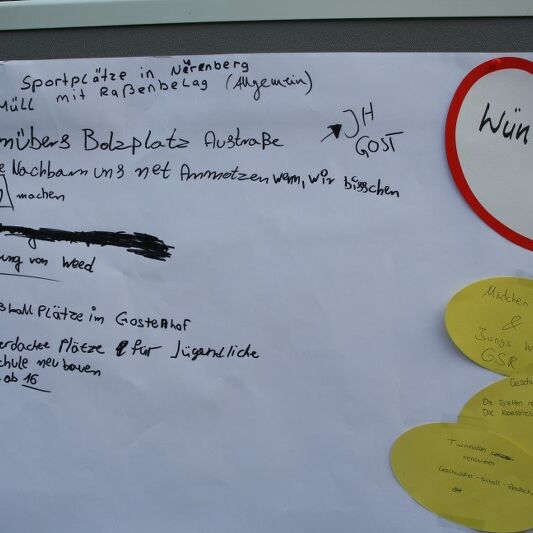 Sportplätze in Nürenberg
Müll mit Raßenbelag (Allgemein)
nübers Bolzplatz Austraße
JH
GOST
e Nachbarn uns net Anmotzen wenn, wir bisschen
machen
ung von Weed
ßball Plätze im Gostenhof
erdachte Plätze für Jügendliche
chule neu bauen
ab 16
Wün
Mädchen
&
Jungs W
GSR
Gesch
Turnhallen
renovieren
Geschwister-Scholl-